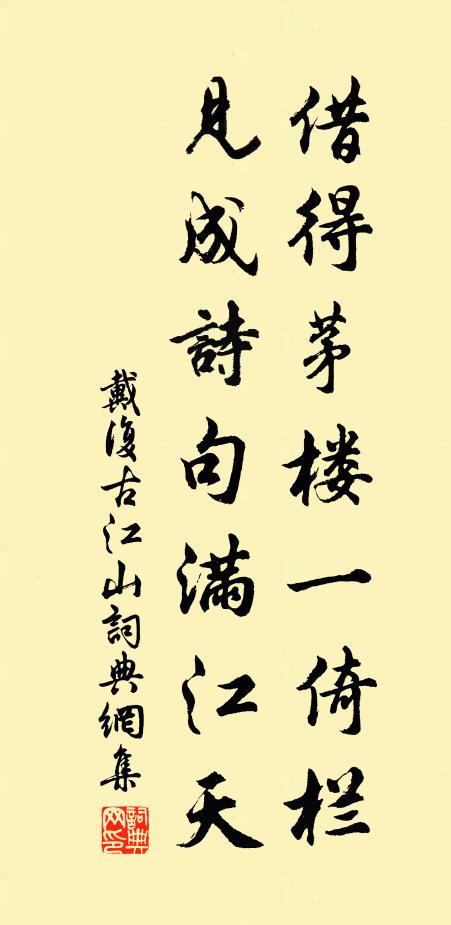 借得茅楼一倚栏
見成詩句满江天
戴復古江山詞典網集
詞典网印